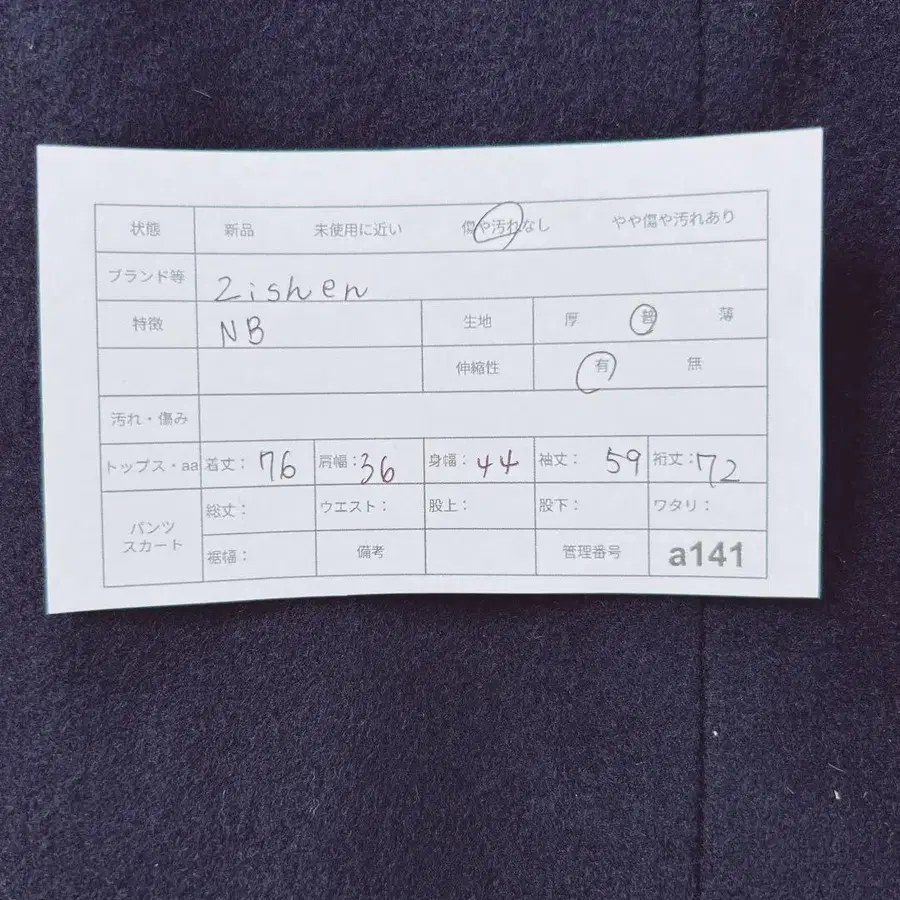 状態 新品 未使用に近い 傷や汚れなし やや傷や汚れあり
ブランド等 Zishen
特徴 NB 生地 厚 普 薄
伸縮性 有 無
汚れ・傷み
トップス・aa 着丈: 76 肩幅: 36 身幅: 44 袖丈: 59 裄丈: 72
パンツ スカート 総丈: ウエスト: 股上: 股下: ワタリ:
裾幅: 備考 管理番号 a141